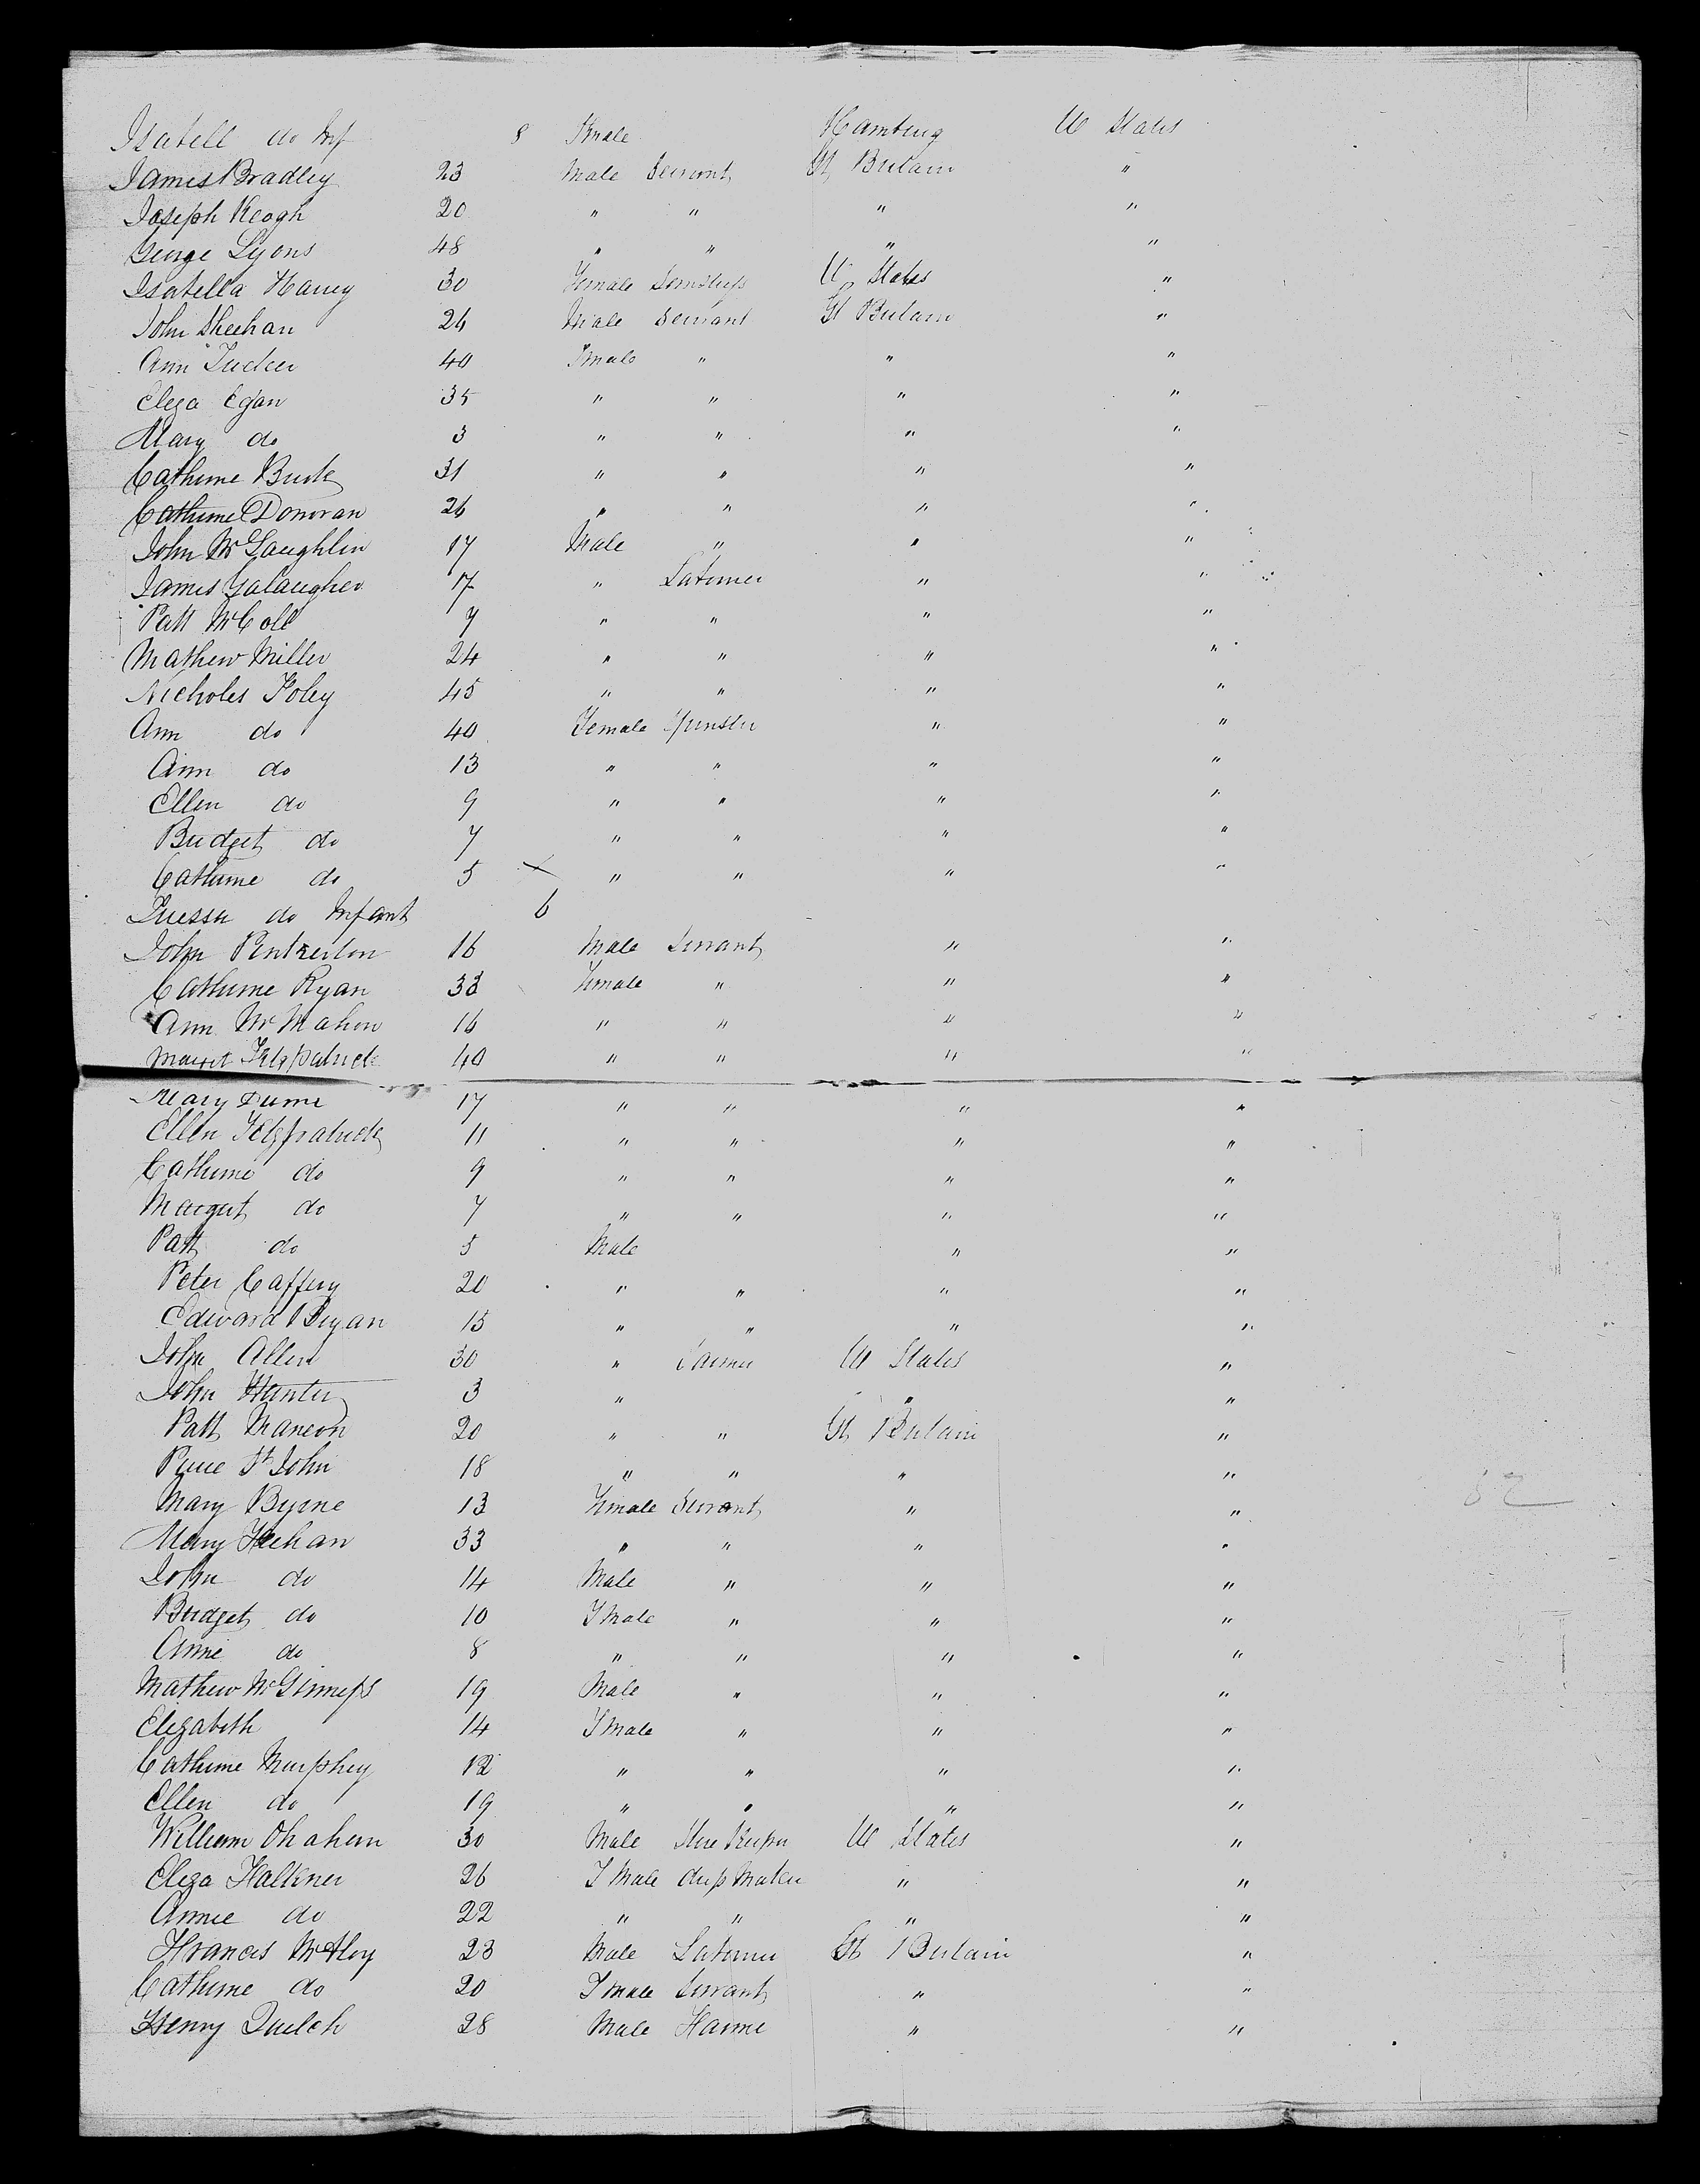 Isabell do Inf 8 Fmale Hamburg U States
James Bradley 23 Male Servant Gt Britain "
Joseph Keogh 20 " " " "
George Lyons 48 " " " "
Isabella Harvey 30 Female Semstress U States "
John Sheehan 24 Male Servant Gt Britain "
Ann Tucker 40 Fmale " " "
Eliza Egan 35 " " " "
Mary do 3 " " " "
Catherine Burke 31 " " " "
Catherine Donovan 26 " " " "
John McLaughlin 17 Male " " "
James Galaugher 17 " Laborer " "
Patt McColl 7 " " " "
Mathew Miller 24 " " " "
Nicholes Foley 45 " " " "
Ann do 40 Female Spinster " "
Ann do 13 " " " "
Ellen do 9 " " " "
Bridget do 7 " " " "
Catherine do 5 " " " "
do Infant 6
John Pinkerton 16 Male Servant " "
Catherine Ryan 33 Female " " "
Ann McMahon 16 " " " "
Margret Fitzpatrick 40 " " " "
Mary Dunne 17 " " " "
Ellen Fitzpatrick 11 " " " "
Catherine do 9 " " " "
Margret do 7 " " " "
Patt do 5 Male " "
Peter Caffery 20 " " " "
Edward Bryan 15 " " " "
John Allen 30 " Farmer U States "
John Hunter 3 " " "
Patt 20 " " Gt Britain "
Pierce St John 18 " " " "
Mary Byrne 13 Female Servant " "
Mary Feehan 33 " " " "
John do 14 Male " " "
Bridget do 10 Fmale " " "
Anne do 8 " " " "
Mathew McGinness 19 Male " " "
Elizabeth 14 Fmale " " "
Catherine Murphey 12 " " " "
Ellen do 19 " " " "
William Ohahern 30 Male Store Keeper U States "
Eliza Falkner 26 F Male dress Maker " "
Annie do 22 " " " "
Francis McAloy 23 Male Laborer Gt Britain "
Catherine do 20 Fmale Servant " "
Henry Quelch 28 Male Farmer " "
52